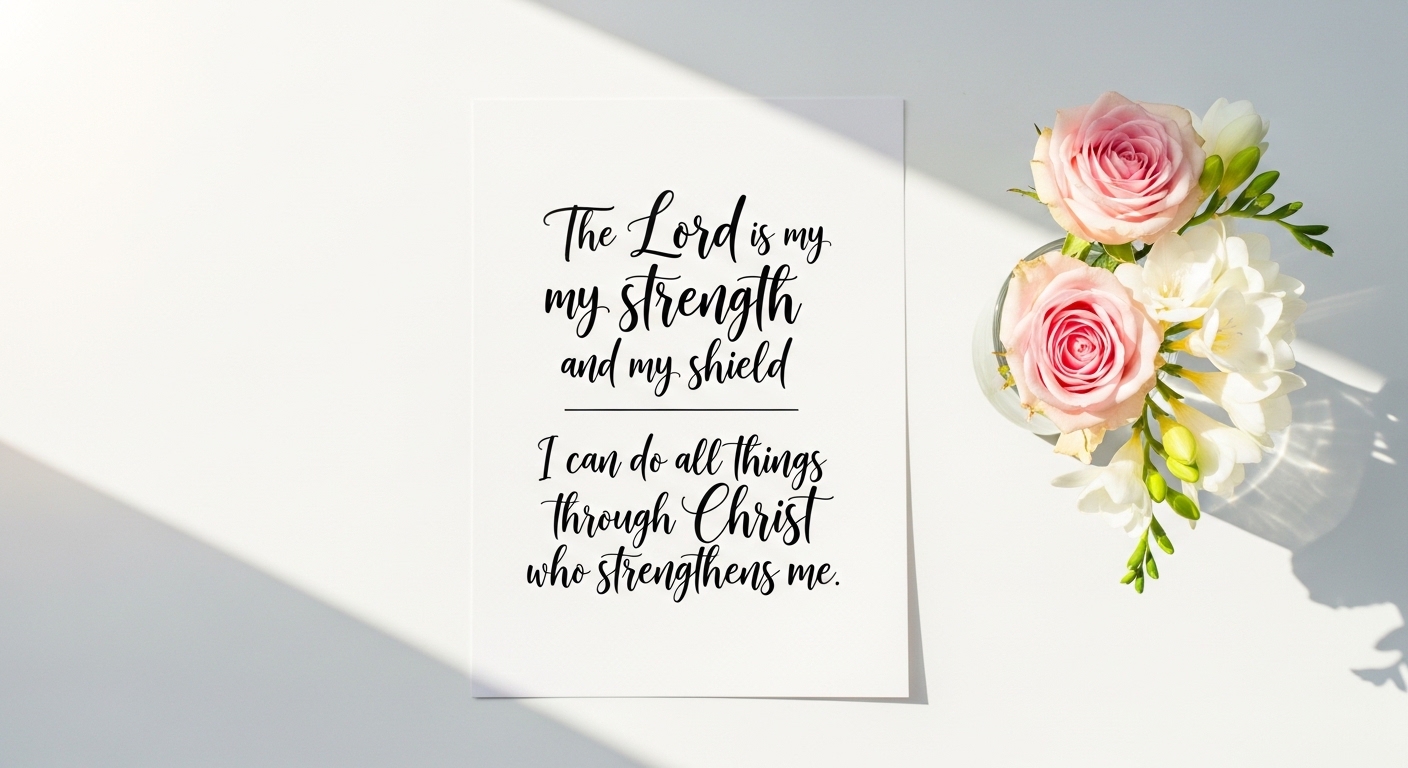 The Lord is my
my strength
and my shield
I can do all things
through Christ
who strengthens me.